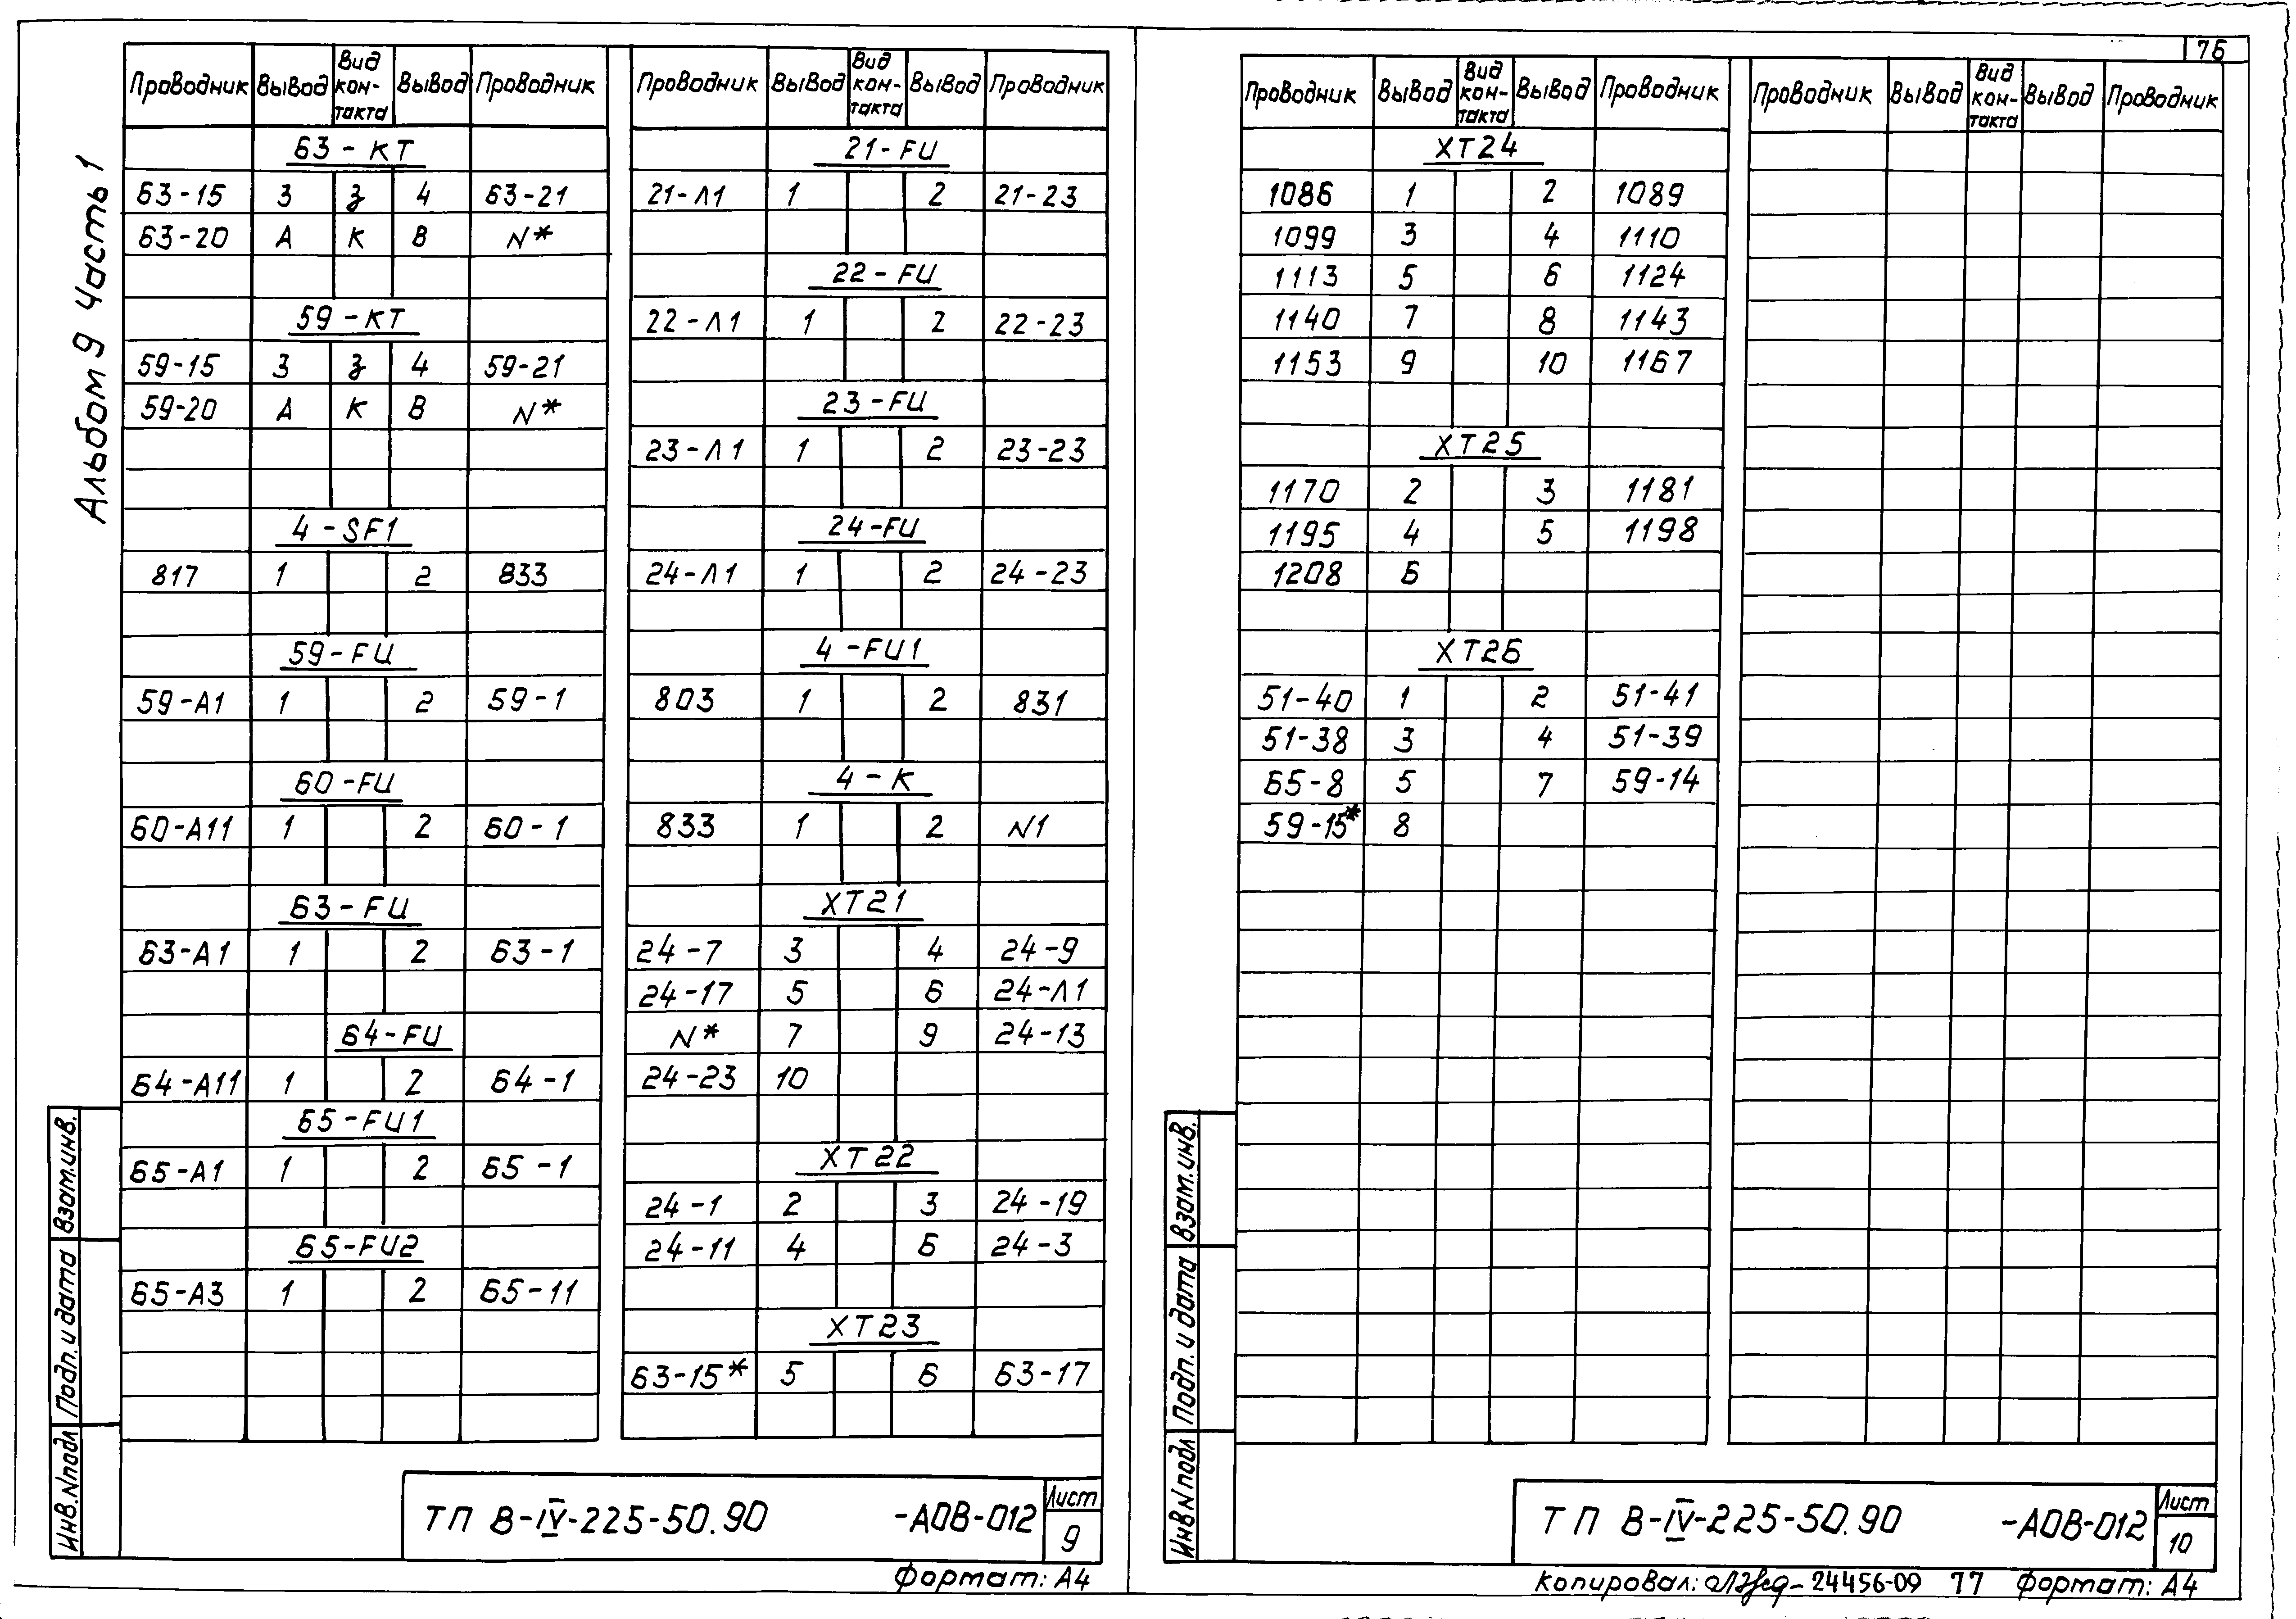 Альбом 9 Часть 1
Проводник Вывод Вид контакта Вывод Проводник
63-КТ
63-15 3 з 4 63-21
63-20 А К В N*
59-КТ
59-15 3 з 4 59-21
59-20 А К В N*
4-SF1
817 1 2 833
59-FU
59-А1 1 2 59-1
60-FU
60-А11 1 2 60-1
63-FU
63-А1 1 2 63-1
64-FU
64-А11 1 2 64-1
65-FU1
65-А1 1 2 65-1
65-FU2
65-А3 1 2 65-11
Проводник Вывод Вид контакта Вывод Проводник
21-FU
21-Л1 1 2 21-23
22-FU
22-Л1 1 2 22-23
23-FU
23-Л1 1 2 23-23
24-FU
24-Л1 1 2 24-23
4-FU1
803 1 2 831
4-К
833 1 2 N1
ХТ21
24-7 3 4 24-9
24-17 5 6 24-Л1
N* 7 9 24-13
24-23 10
ХТ22
24-1 2 3 24-19
24-11 4 6 24-3
ХТ23
63-15* 5 6 63-17
Взам.инв.
Подп. и дата
Инв.Nподл
ТП В-IV-225-50.90 -АОВ-012
Лист
9
Формат: А4
76
Проводник Вывод Вид контакта Вывод Проводник
ХТ24
1086 1 2 1089
1099 3 4 1110
1113 5 6 1124
1140 7 8 1143
1153 9 10 1167
ХТ25
1170 2 3 1181
1195 4 5 1198
1208 6
ХТ26
51-40 1 2 51-41
51-38 3 4 51-39
65-8 5 7 59-14
59-15* 8
Проводник Вывод Вид контакта Вывод Проводник
Взам.инв.
Подп. и дата
Инв N подл
ТП В-IV-225-50.90 -АОВ-012
Лист
10
Копировал: 24456-09 77 Формат: А4